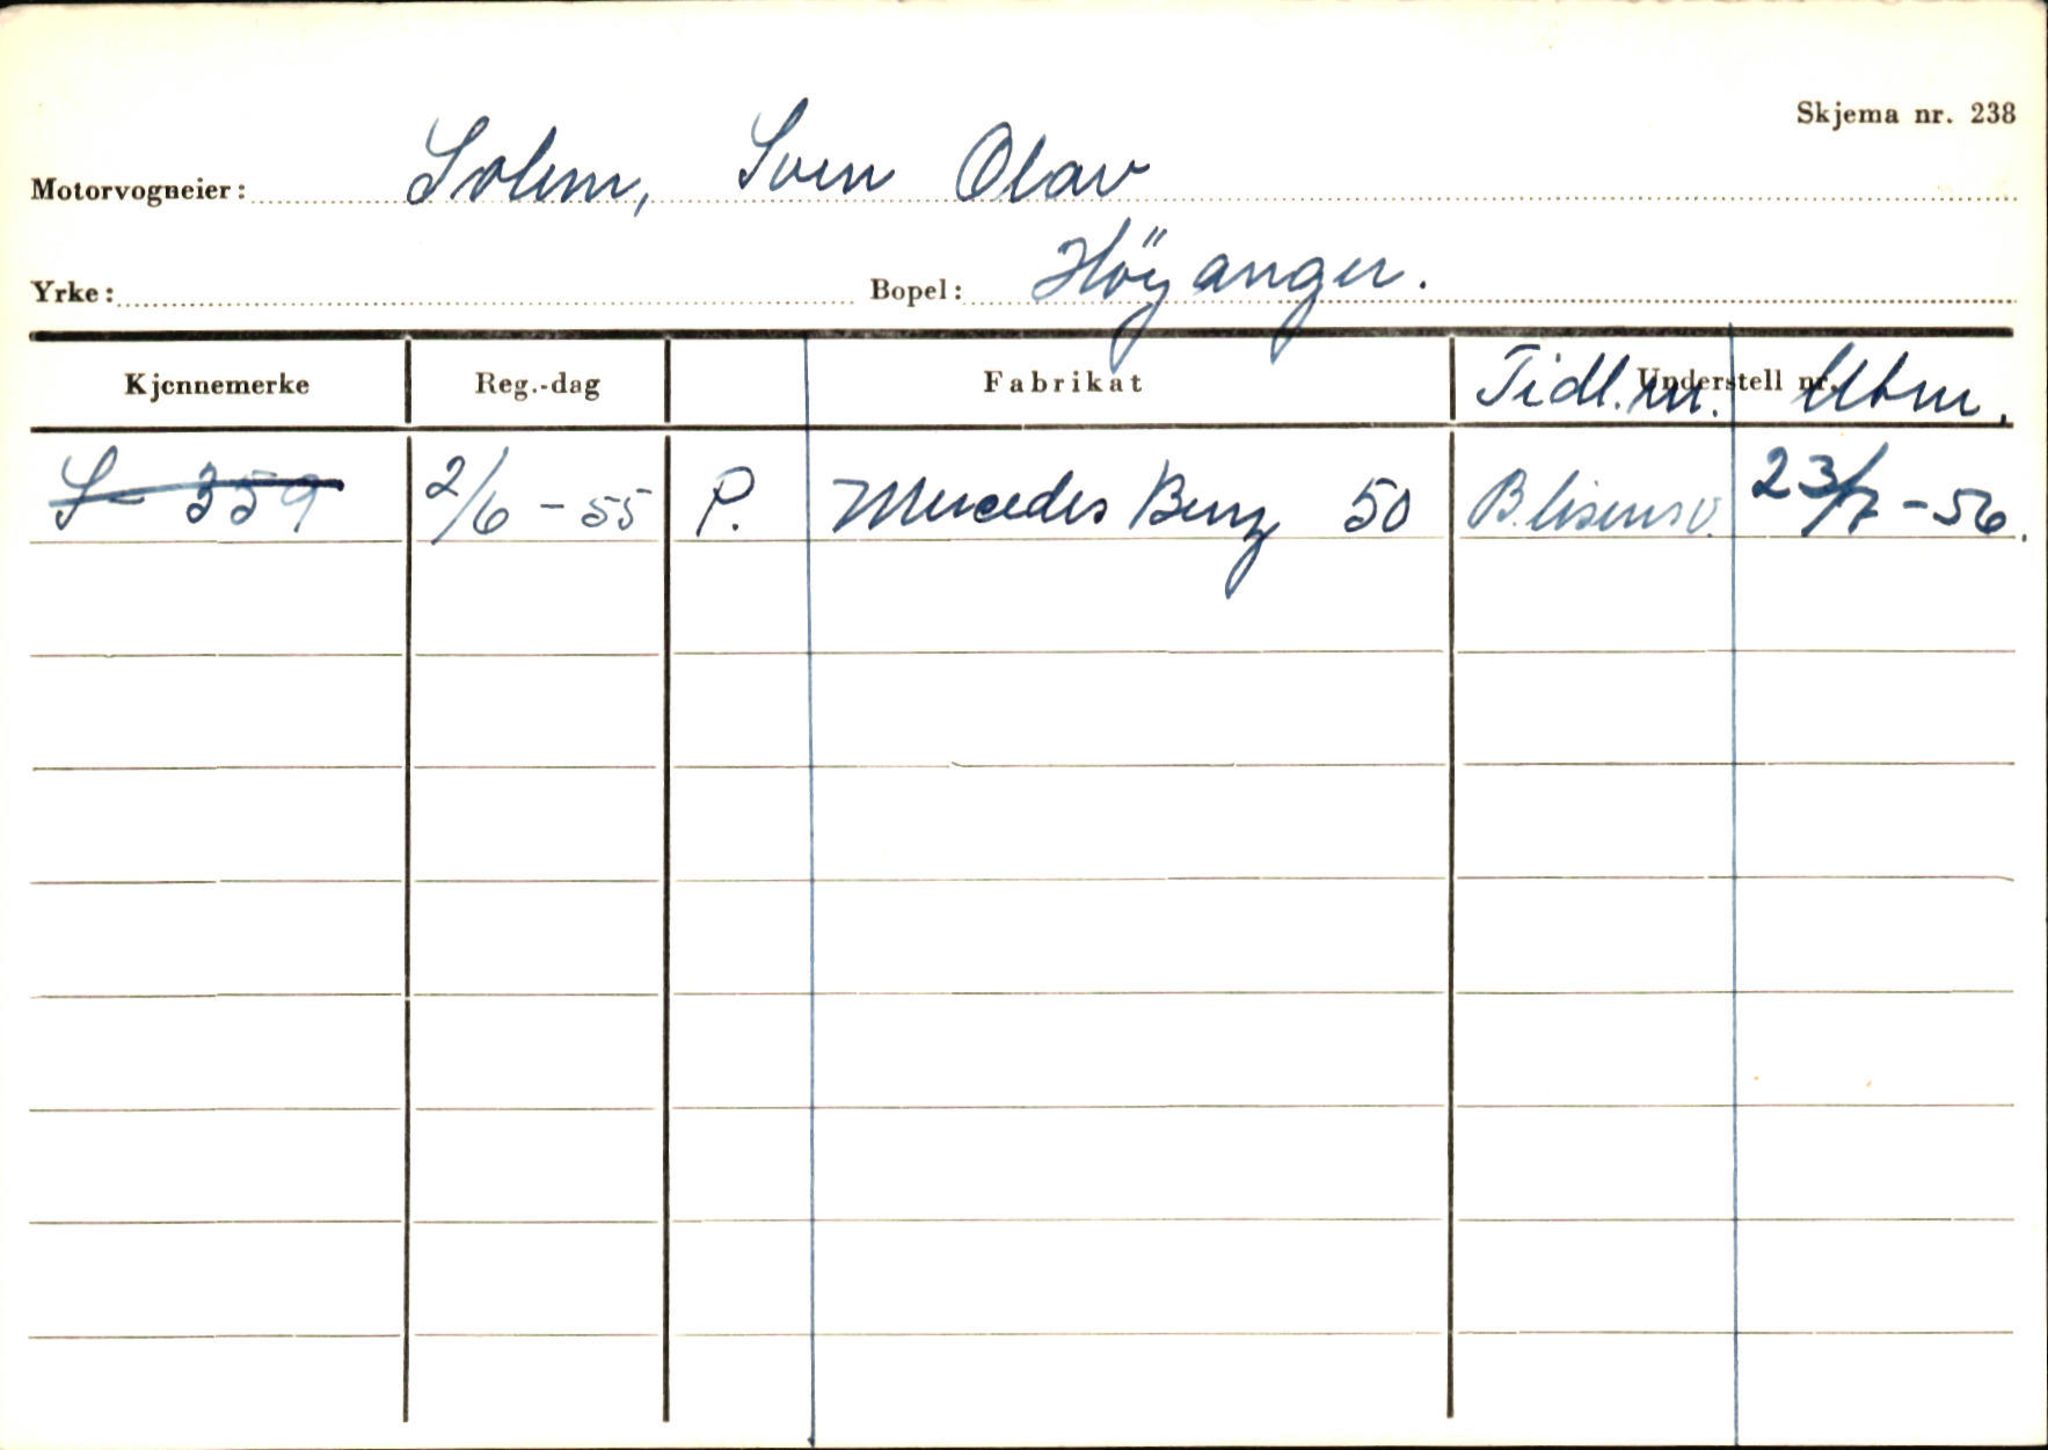 Skjema nr. 238
Motorvogneier: Solem, Sven Olav
Yrke: Bopel: Höyanger.
Kjennemerke Reg.-dag Fabrikat Understell nr. Tidl. nr. Utm.
S- 359 2/6 - 55 P. Mercedes Benz 50 23/7 - 56.